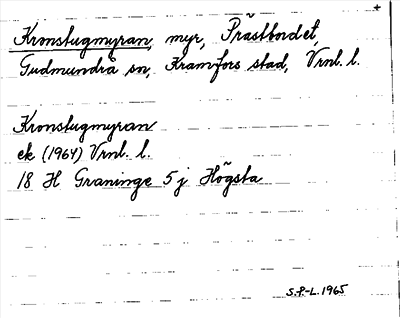 Kronstugmyran, myr, Prästbordet,
Gudmundrå sn, Kramfors stad, Vrnl. l.
Kronstugmyran
ek (1964) Vrnl. l.
18 H Graninge 5 j Högsta
S.P-L. 1965